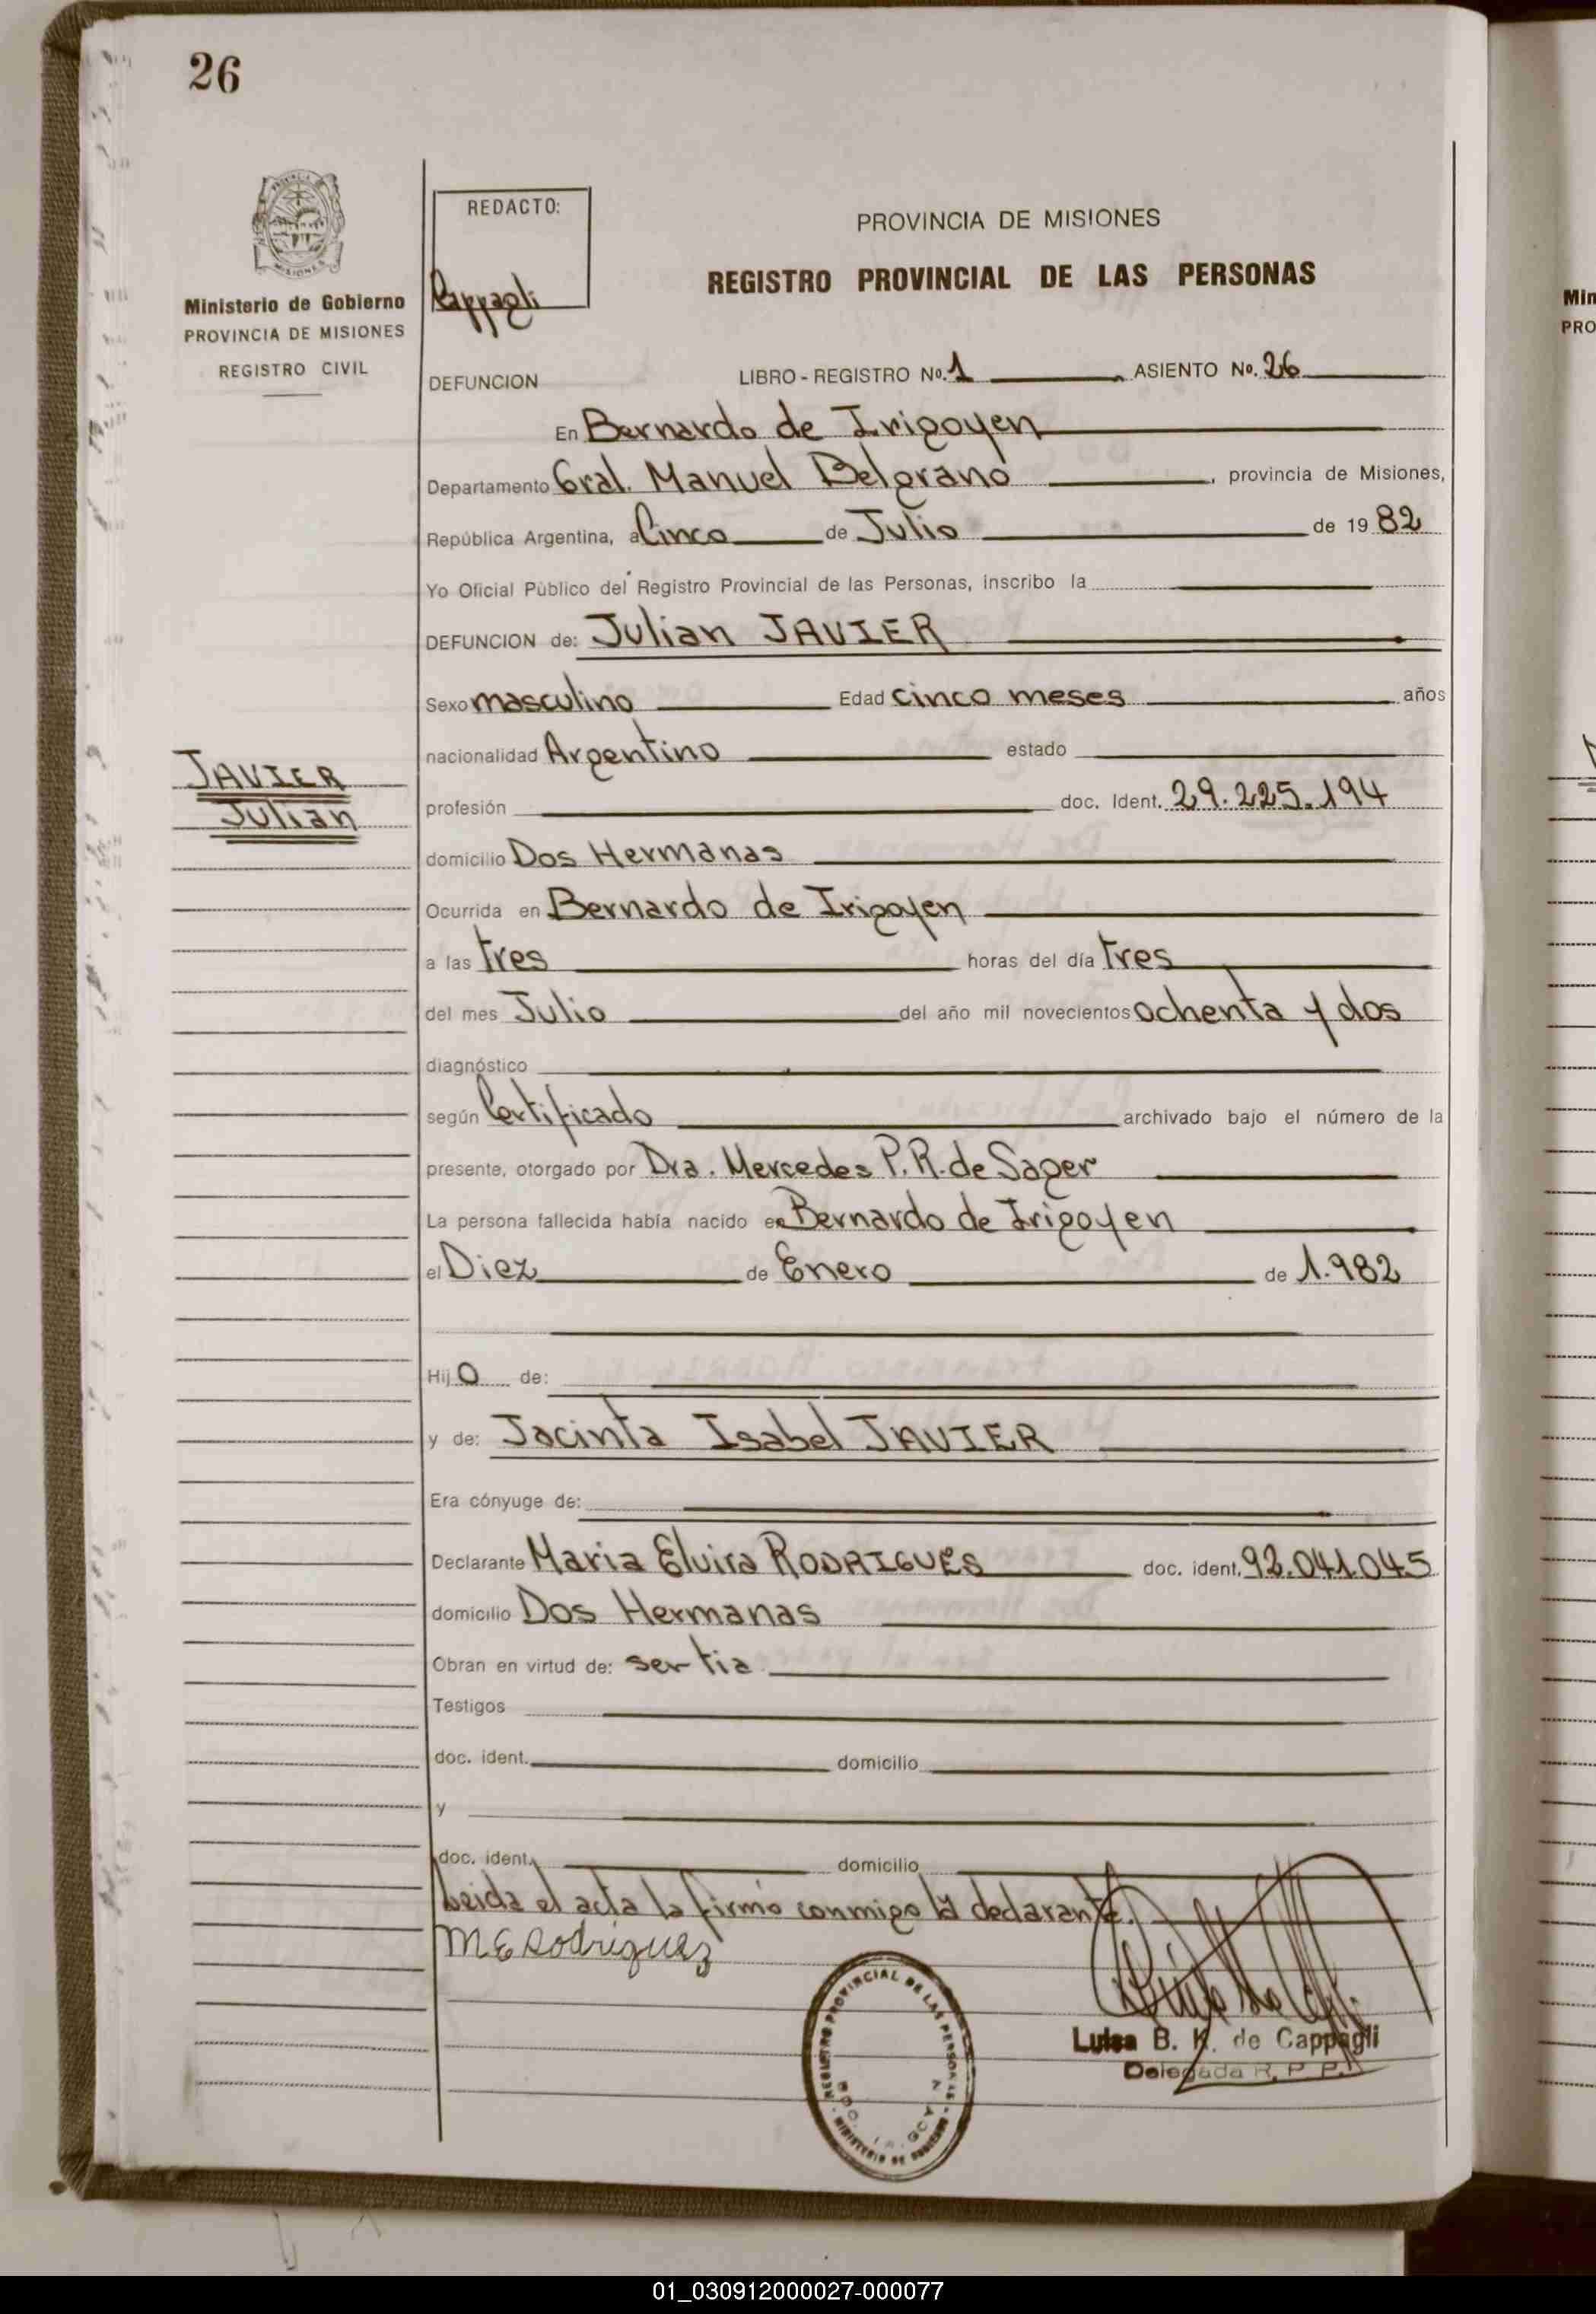 26
PROVINCIA DE
MISIONES
Ministerio de Gobierno
PROVINCIA DE MISIONES
REGISTRO CIVIL
REDACTO:
Cappagli
PROVINCIA DE MISIONES
REGISTRO PROVINCIAL DE LAS PERSONAS
DEFUNCION LIBRO - REGISTRO Nº. 1 ASIENTO Nº. 26
En Bernardo de Irigoyen
Departamento Gral. Manuel Belgrano, provincia de Misiones,
República Argentina, a Cinco de Julio de 19 82
Yo Oficial Público del Registro Provincial de las Personas, inscribo la
DEFUNCION de: Julian JAVIER
Sexo masculino Edad cinco meses años
nacionalidad Argentino estado
JAVIER
Julian
profesión doc. Ident. 29.225.194
domicilio Dos Hermanas
Ocurrida en Bernardo de Irigoyen
a las tres horas del día tres
del mes Julio del año mil novecientos ochenta y dos
diagnóstico
según Certificado archivado bajo el número de la
presente, otorgado por Dra. Mercedes P. R. de Sager
La persona fallecida había nacido en Bernardo de Irigoyen
el Diez de Enero de 1.982
Hij o de:
y de: Jacinta Isabel JAVIER
Era cónyuge de:
Declarante Maria Elvira RODRIGUES doc. ident. 92.041.045
domicilio Dos Hermanas
Obran en virtud de: ser tia
Testigos
doc. ident. domicilio
y
doc. ident. domicilio
Leida el acta la firmó conmigo la declarante.
M E Rodriguez
REGISTRO PROVINCIAL DE LAS PERSONAS
MINISTERIO DE GOBIERNO
Luisa B. K. de Cappagli
Delegada R. P. P.
Min
PRO
01_030912000027-000077